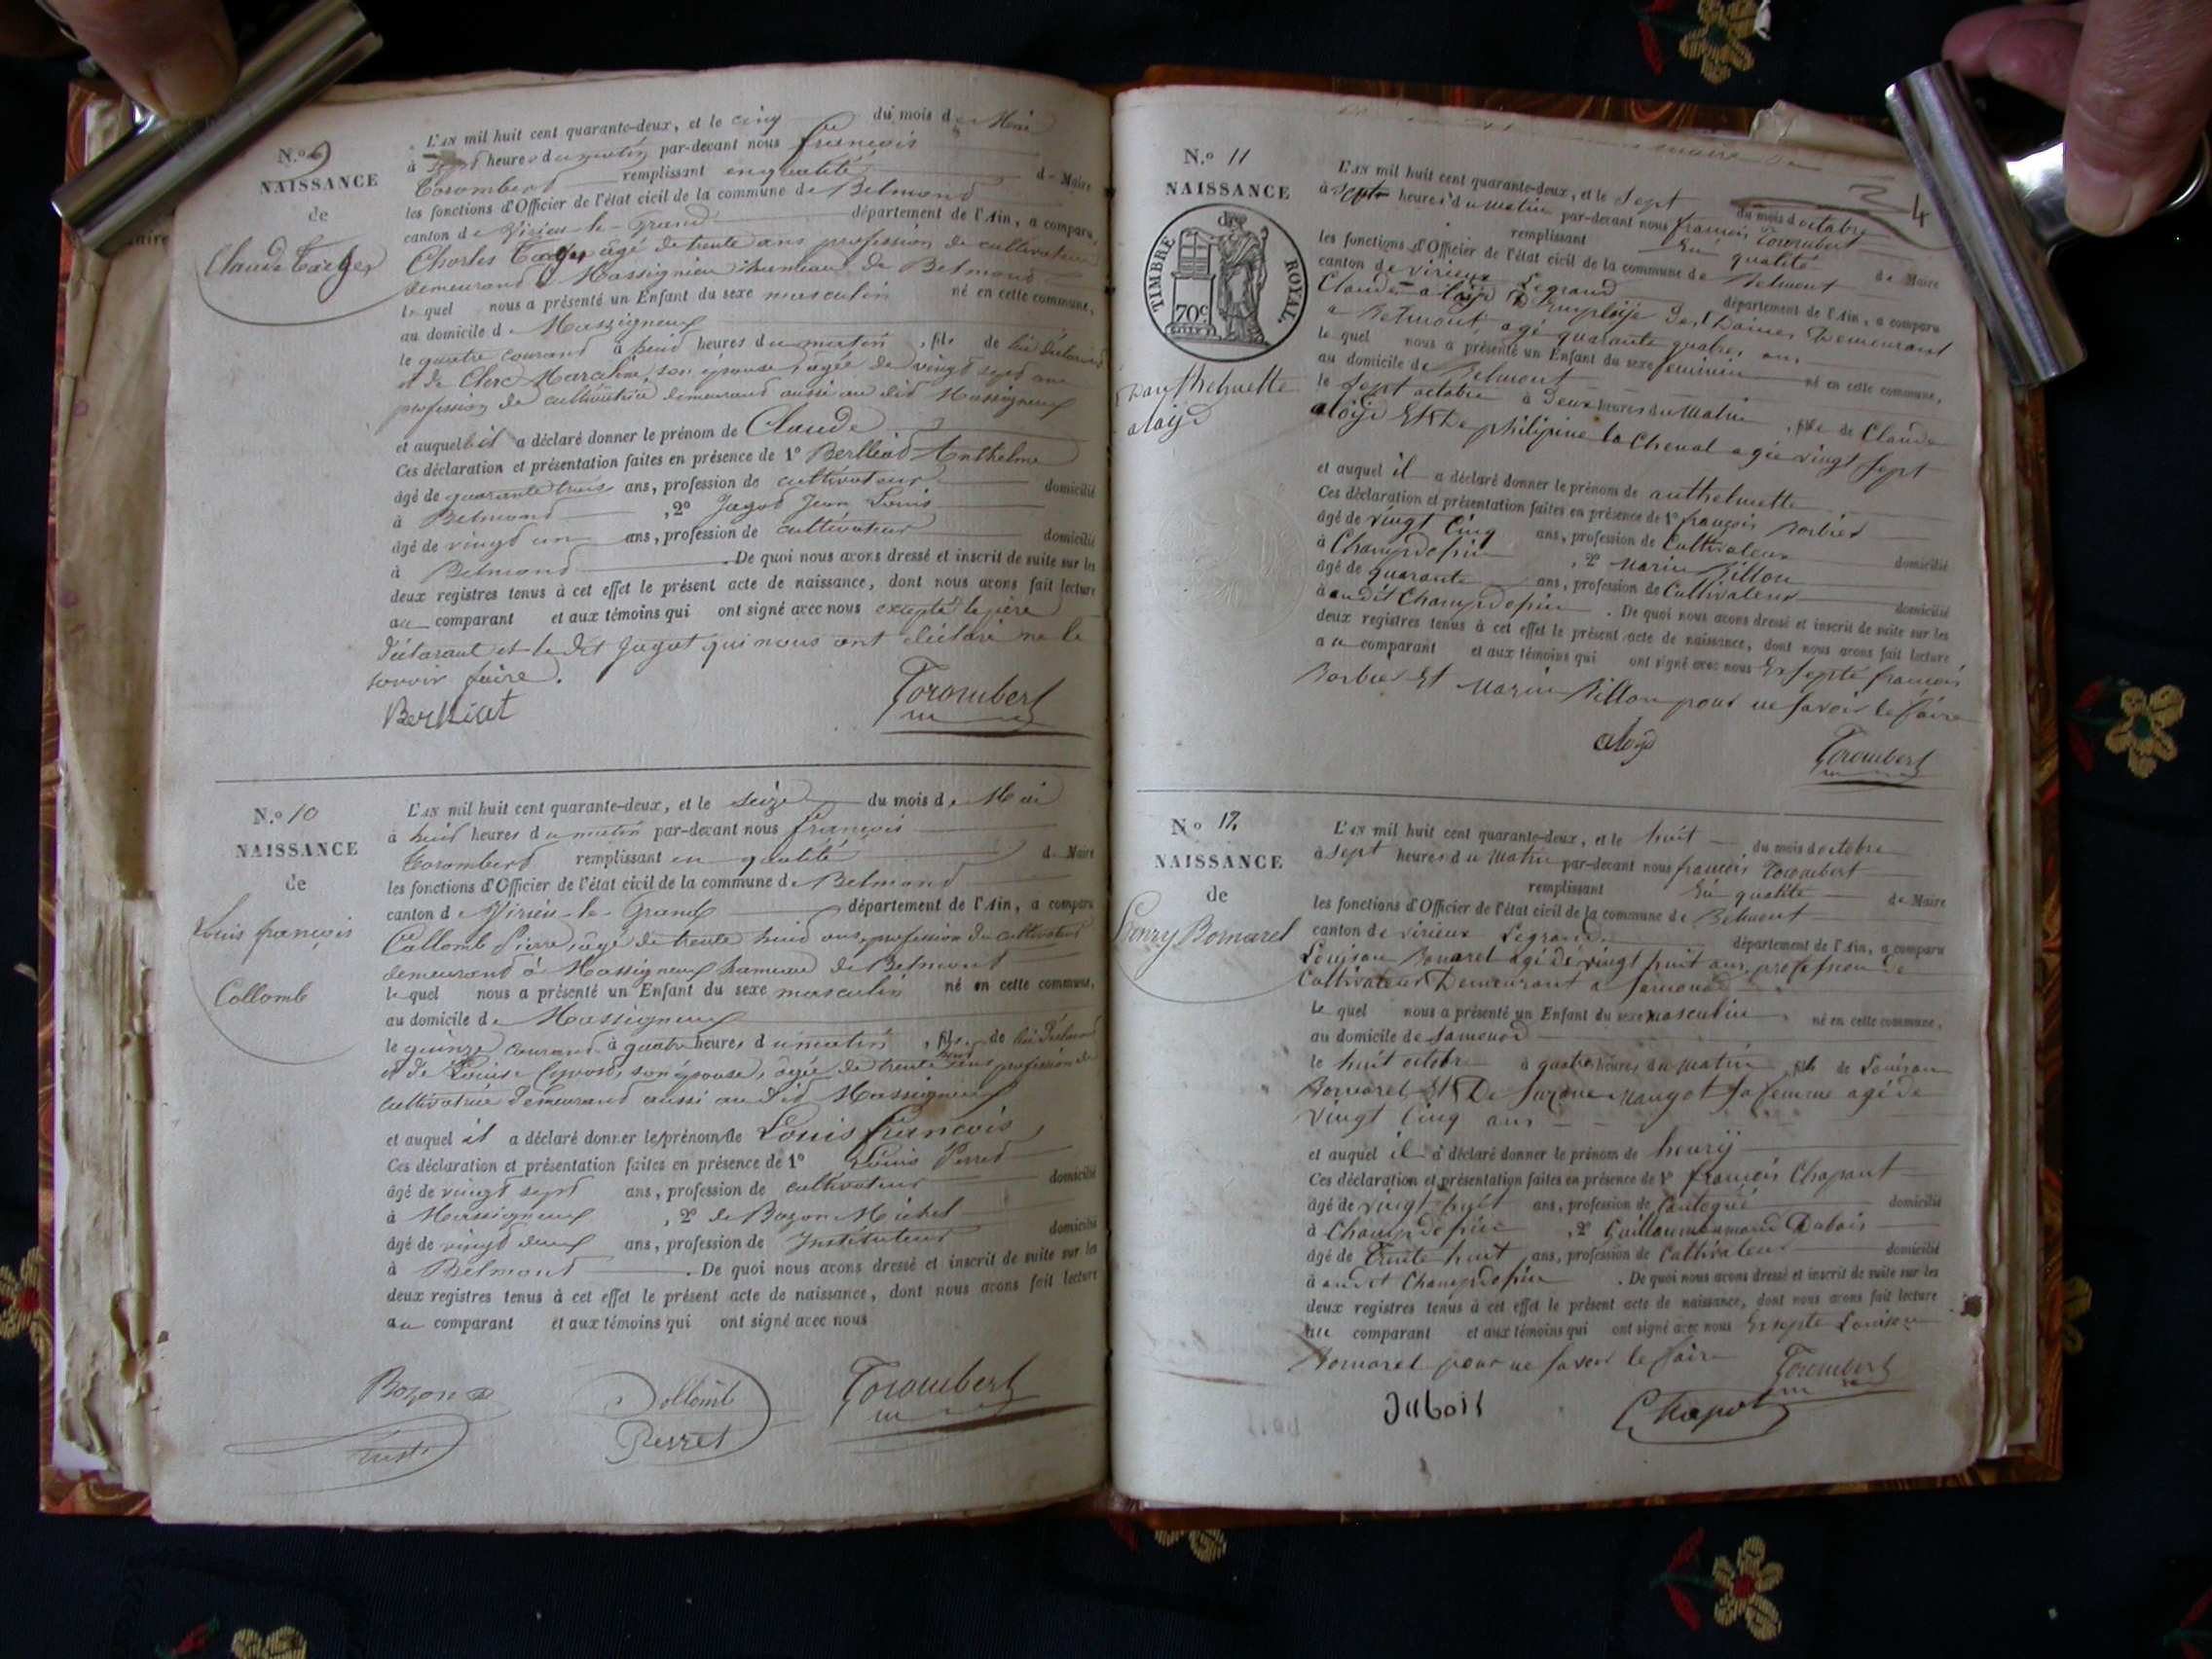 N.º 9
NAISSANCE
de
Claude
L'AN mil huit cent quarante-deux, et le cinq du mois de Mai
à sept heures du matin par-devant nous françois
Torombert remplissant en qualité de Maire
les fonctions d'Officier de l'état civil de la commune de Belmond
canton de Virieu-le-Grand département de l'Ain, a comparu
Charles âgé de trente ans profession de cultivateur
demeurand à Massignieu hameau de Belmond
lequel nous a présenté un Enfant du sexe masculin né en cette commune,
au domicile de Massigneux
le quatre courand à heures du matin, fils de lui déclarand
et de Clerc son épouse, âgée de vingt sept ans
profession de cultivatrice demeurand aussi au did Massigneux
et auquel il a déclaré donner le prénom de Claude
Ces déclaration et présentation faites en présence de 1º Berlliod Anthelme
âgé de quarante trois ans, profession de cultivateur domicilié
à Belmond, 2º Jagod Jean Louis
âgé de vingd un ans, profession de cultivateur domicilié
à Belmond. De quoi nous avons dressé et inscrit de suite sur les
deux registres tenus à cet effet le présent acte de naissance, dont nous avons fait lecture
au comparant et aux témoins qui ont signé avec nous excepté le père
déclarant et le dit Jagot qui nous ont déclaré ne le
savoir faire.
Berlliat Torombert
N.º 10
NAISSANCE
de
Louis françois
Collomb
L'AN mil huit cent quarante-deux, et le seize du mois de Mai
à huid heures du matin par-devant nous françois
Torombert remplissant en qualité de Maire
les fonctions d'Officier de l'état civil de la commune de Belmond
canton de Virieu-le-Grand département de l'Ain, a comparu
Collomb Pierre, âgé de trente huid ans, profession de cultivateur
demeurand à Massigneux hameau de Belmont
lequel nous a présenté un Enfant du sexe masculin né en cette commune,
au domicile de Massigneux
le quinze courand à quatre heures du matin, fils de lui déclarand
et de Louise son épouse, âgée de trente ans profession de
cultivatrice demeurand aussi au did Massigneux
et auquel il a déclaré donner le prénom de Louis françois
Ces déclaration et présentation faites en présence de 1º Louis Perret
âgé de vingd sept ans, profession de cultivateur domicilié
à Massigneux, 2º de Bozon Michel
âgé de vingd deux ans, profession de Instituteur domicilié
à Belmond. De quoi nous avons dressé et inscrit de suite sur les
deux registres tenus à cet effet le présent acte de naissance, dont nous avons fait lecture
au comparant et aux témoins qui ont signé avec nous
Bozon Collomb Torombert
Perret
4
N.º 11
NAISSANCE
de
TIMBRE ROYAL.
70c
anthelmette
aloijs
L'AN mil huit cent quarante-deux, et le sept du mois d octobre
à sept heures du Matin par-devant nous francois Torombert
remplissant En qualité de Maire
les fonctions d'Officier de l'état civil de la commune de Belmont
canton de virieux Legrand département de l'Ain, a comparu
Claude Employé Des Demeurant
a Belmont, agé quarante quatres ans
le quel nous a présenté un Enfant du sexe feminin né en cette commune,
au domicile de Belmont
le Sept octobre à Deux heures du Matin, fille de Claude
Et De philipine la Cheval agée vingt sept
et auquel il a déclaré donner le prénom de anthelmette
Ces déclaration et présentation faites en présence de 1º françois Borbier
âgé de vingt Cinq ans, profession de Cultivateur domicilié
à Champdofin, 2º Marin Billon
âgé de quarante ans, profession de Cultivateur domicilié
à audit Champdofin. De quoi nous avons dressé et inscrit de suite sur les
deux registres tenus à cet effet le présent acte de naissance, dont nous avons fait lecture
au comparant et aux témoins qui ont signé avec nous Exsepté francois
Borbier Et Marin Billon pour ne savoir le faire
Torombert
Nº 12
NAISSANCE
de
henry Bornarel
L'AN mil huit cent quarante-deux, et le huit du mois d octobre
à Sept heures du Matin par-devant nous francois Torombert
remplissant En qualité de Maire
les fonctions d'Officier de l'état civil de la commune de Belmont
canton de virieux Legrand département de l'Ain, a comparu
Louison Bonarel agé de vingt huit ans, profession de
Cultivateur Demeurant a Samonod
le quel nous a présenté un Enfant du sexe masculin né en cette commune,
au domicile de Samonod
le huit octobre à quatre heures du Matin fils de Louison
Bornarel Et De Suzane Mangot Sa femme agé de
vingt Cinq ans
et auquel il a déclaré donner le prénom de henrij
Ces déclaration et présentation faites en présence de 1º francois Chapaut
âgé de vingt ans, profession de domicilié
à Champdofin, 2º Guillaume Dubois
âgé de Trente huit ans, profession de Cultivateur domicilié
à audit Champdofin. De quoi nous avons dressé et inscrit de suite sur les
deux registres tenus à cet effet le présent acte de naissance, dont nous avons fait lecture
au comparant et aux témoins qui ont signé avec nous Exsepté Louison
Bornarel pour ne savoir le faire Torombert
Dubois Chapot